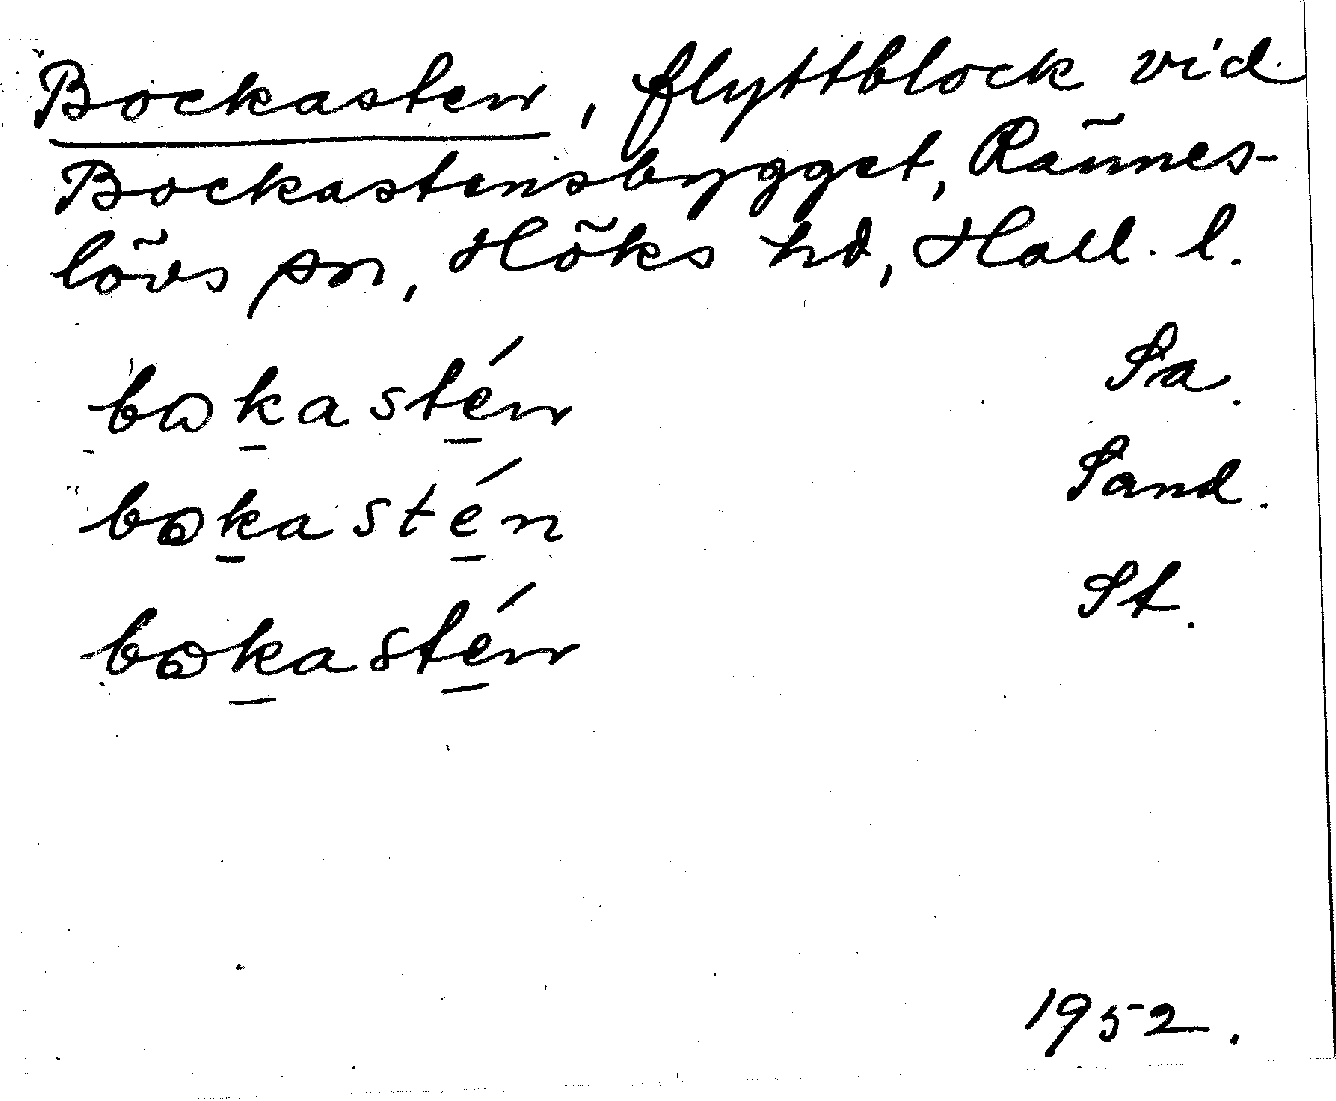 Bockasten, flyttblock vid
Bockastensbygget, Rännes-
lövs sn, Höks hd, Hall. l.
bokastén Sa.
bokastén Sand.
bokastén St.
1952.